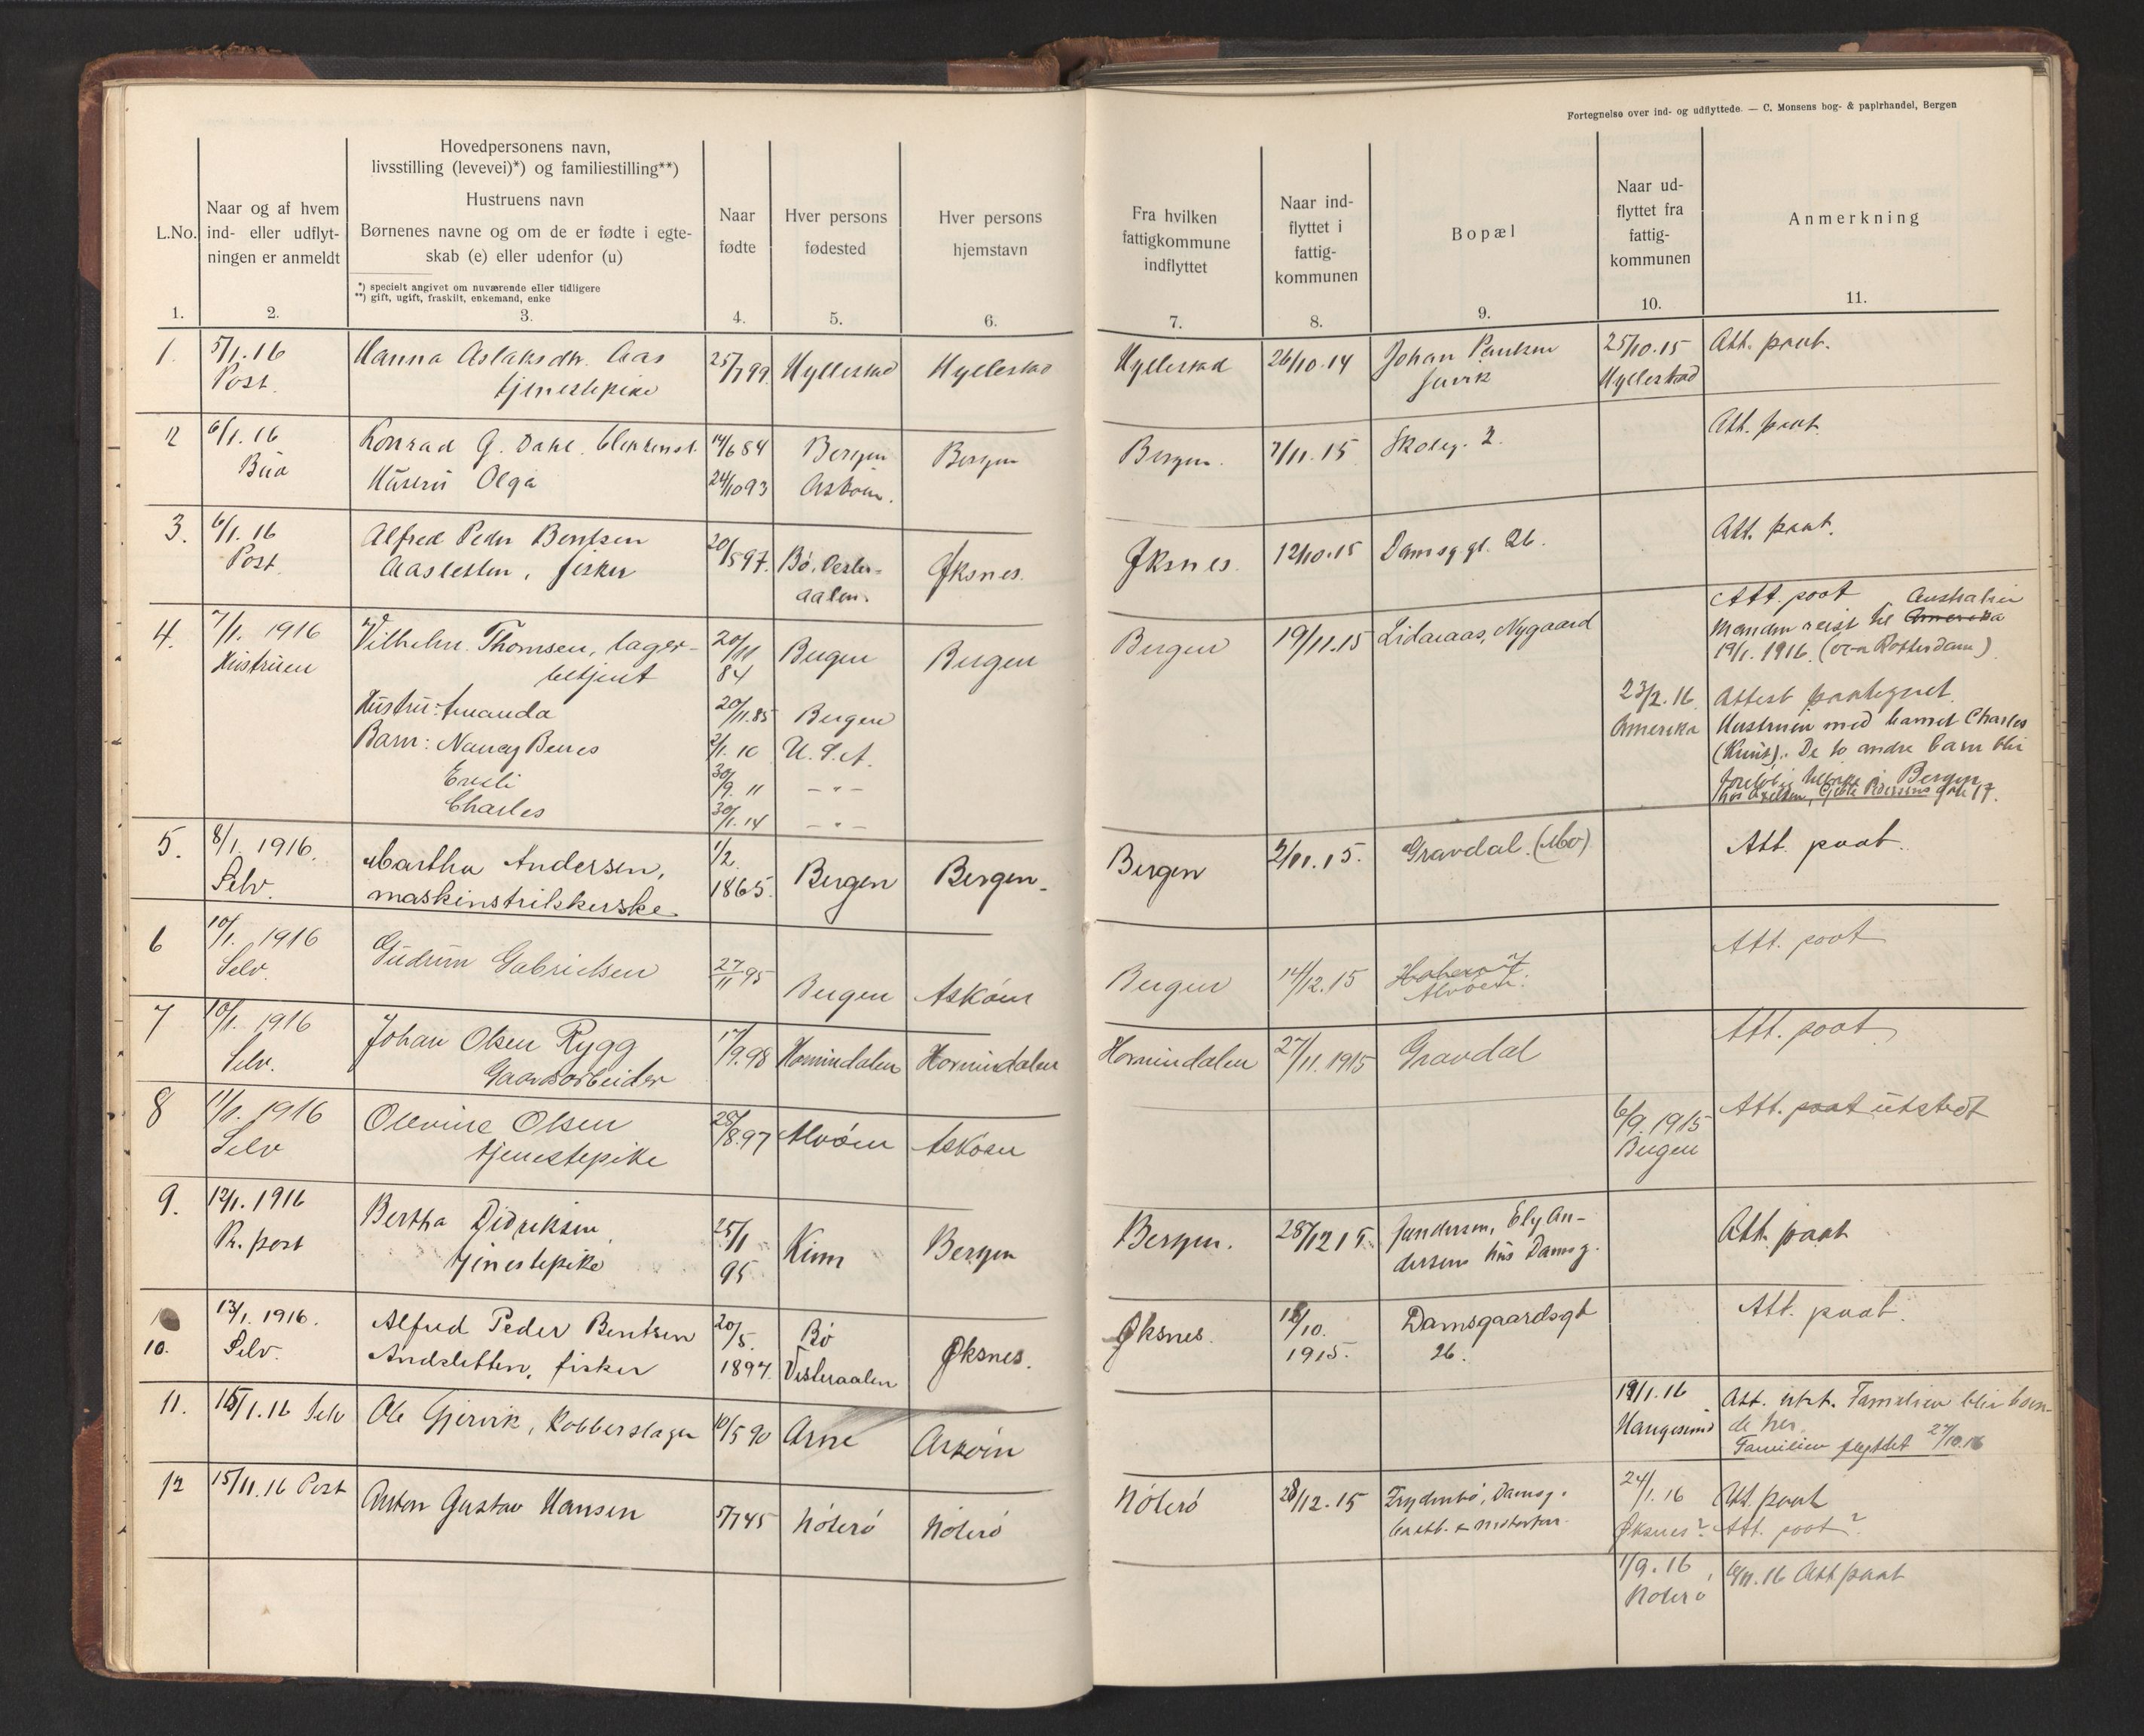 Fortegnelse over ind- og udflyttede. — C. Monsens bog- & papirhandel, Bergen
L.No.
1.
Naar og af hvem
ind- eller udflyt-
ningen er anmeldt
2.
Hovedpersonens navn,
livsstilling (levevei)*) og familiestilling**)
Hustruens navn
Børnenes navne og om de er fødte i egte-
skab (e) eller udenfor (u)
*) specielt angivet om nuværende eller tidligere
**) gift, ugift, fraskilt, enkemand, enke
3.
Naar
fødte
4.
Hver persons
fødested
5.
Hver persons
hjemstavn
6.
Fra hvilken
fattigkommune
indflyttet
7.
Naar ind-
flyttet i
fattig-
kommunen
8.
Bopæl
9.
Naar ud-
flyttet fra
fattig-
kommunen
10.
Anmerkning
11.
1.
5/1.16
Post.
Hanna Aslaksdtr. Aas
tjenestepike
25/7 99.
Hyllestad
Hyllestad
Hyllestad
26/10.14
Johan Paulsen
25/10.15
Hyllestad
Att. paat.
2
6/1.16
Bua
Konrad G. Dahl.
Hustru Olga
14/6 84
24/10 93
Bergen
Askøin.
Bergen
Bergen.
7/11.15
Skoleg. 2.
Att. paat.
3.
6/1.16
Post.
Alfred Peder Bentsen
fisker
20/5 97.
Bø. Vester-
aalen.
Øksnes.
Øksnes.
12/10.15
Damsg gt. 26.
Att. paat.
4.
7/1. 1916
Hustruen
Vilhelm Thomsen, lager-
betjent
Hustru: Amanda
Barn: Nancy
Charles
20/11
84
20/11.85
2/1. 10
30/9. 11
30/1.14
Bergen
Bergen
U. S. A.
— " —
— " —
Bergen
Bergen
19/11.15
Lidaraas, Nygaard
23/2.16
Amerika
Att. paat Australien
Manden reist til Amerika
19/1. 1916. (over Rotterdam)
Attest paategnet.
Hustruen med barnet Charles
De to andre barn blir
foreløbig tilbake i Bergen
gate 17.
5.
8/1. 1916.
Selv.
Martha Andersen,
maskinstrikkerske
1/2.
1865.
Bergen
Bergen.
Bergen
2/11.15.
Gravdal. (Mo)
Att. paat.
6
10/1. 1916
Selv.
Gudrun Gabrielsen
27/11 95
Bergen
Askøen
Bergen
14/12.15
Alvøen.
Att. paat
7
10/1. 1916
Selv.
Johan Olsen Rygg
Gaardsarbeider
17/9.98
Hornindalen
Hornindalen
Hornindalen
27/11.1915
Gravdal
Att. paat.
8
11/1. 1916
Selv
Olevine Olsen
tjenestepike
28/8.97
Alvøen
Askøen
6/9.1915
Bergen
Att. paat utstedt
9.
12/1.1916
R. post
Bertha Didriksen,
tjenestepike
25/1
95
Kinn
Bergen
Bergen.
28/12 15.
Gundersen, Ely An-
dersens hus Damsg.
Att. paat
10.
13/1. 1916.
Selv.
Alfred Peder Bentsen
Andsletten, fisker
20/5.
1897.
Bø
Vesteraalen
Øksnes.
Øksnes.
12/10.
1915.
Damsgaardsgt
26.
Att. paat.
11.
15/1.16 Selv
Ole Gjervik, Kobberslager
10/5 90
Arne
Askøin
19/1.16
Haugesund
Att. utst. Familien blir boen-
de her.
Familien flyttet 27/10.16
12
15/11.16 Post
Anton Gustav Hansen
5/7 45
Nøterø
Nøterø
Nøterø
28/12.15
Frydenbø, Damsg.
24/1.16
Øksnes?
Att. paat
Att. paat?
1/9.16
Nøterø
6/11.16 Att paat